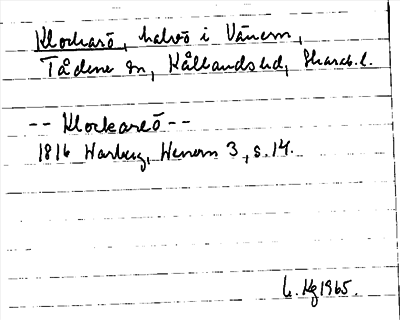 Klockarö, halvö i Vänern,
Tådene sn, Kållands hd, Skarab. l.
-- Klockareö --
1816 Warberg, Wenern 3, s. 14.
1965.